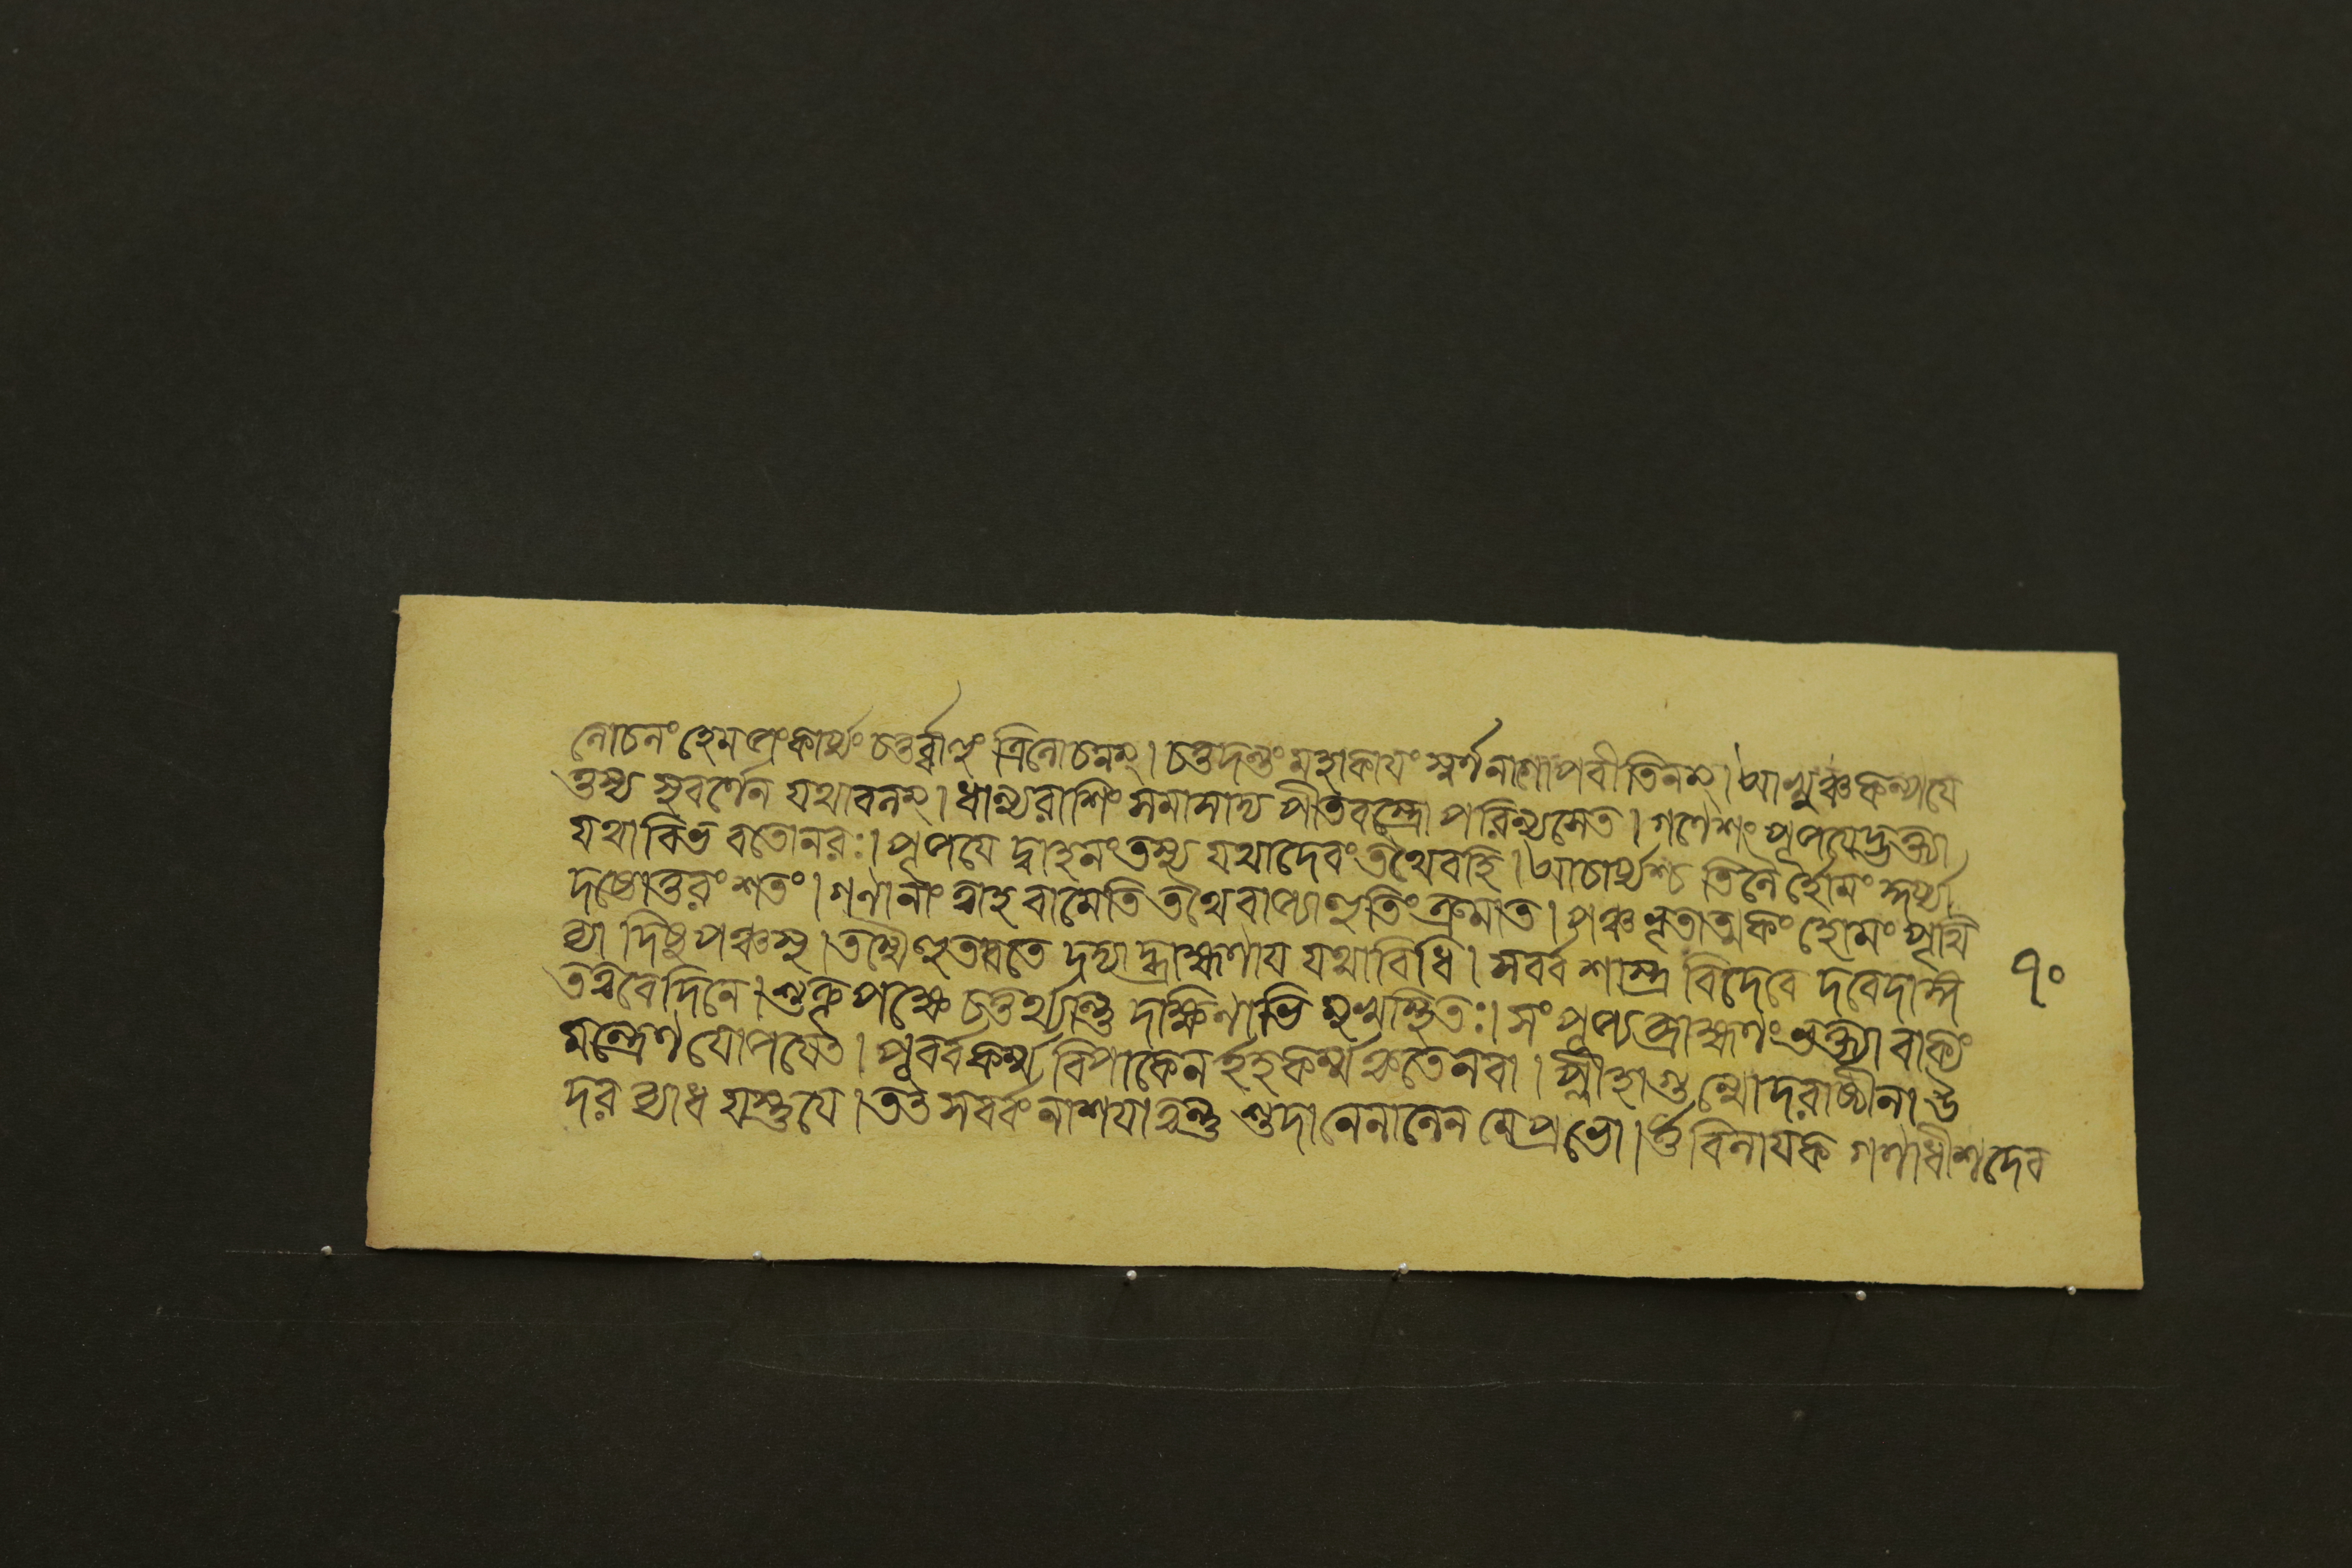 লোচনং হেমপ্রংকার্য্যং চতুর্ব্বাহুং ত্রিলোচনম্। চতুদন্তং মহাকায়ং স্বর্ণনাগোপবীতিনম্। আখুঞ্চ কল্পযে
ত্তস্য সুবর্ণেন যথাবলম্। ধান্যরাশিং সমাসাদ্য পীতবস্ত্রোপরিন্যসেত। গণেশং পূজয়েদ্ভক্ত্যা
যথাবিভবতোনরঃ। পূজযেদ্বাহনং তস্য যথাদেবং তথৈবহি। আচার্য্যশ্চ তিলৈর্হোমং
দষ্টোত্তরং শতং। গণানাং ত্বাহবামেতি তথৈবাজ্যাহুতিং ক্রমাত। পঞ্চঘৃতাত্মকং হোমং পৃথি
ব্যাদিষুপঞ্চসু। তস্মৈহুতবতে দদ্যাদ্ব্রাহ্মণায যথাবিধি। সবর্ব শাস্ত্র বিদেবে দবেদাঙ্গ ৭০
তত্ববেদিনে। শুক্লপক্ষে চতুর্থ্যান্তু দক্ষিণাভিমুখস্থিতঃ। সংপূজ্যব্রাহ্মণং ভক্ত্যা বাক্যং
মন্ত্রেণ যোপযেত। পূবর্বকর্ম্ম বিপাকেন ইহকর্ম্মকৃতেনবা। প্লীহাগুল্মোদরাষ্ঠীলা ঊ
দর ব্যাধ যস্তুযে। তত সবর্বং নাশযাত্বন্তু শুদানেনানেন মেপ্রভো। ওঁ বিনাযক গণাধীশ দেব